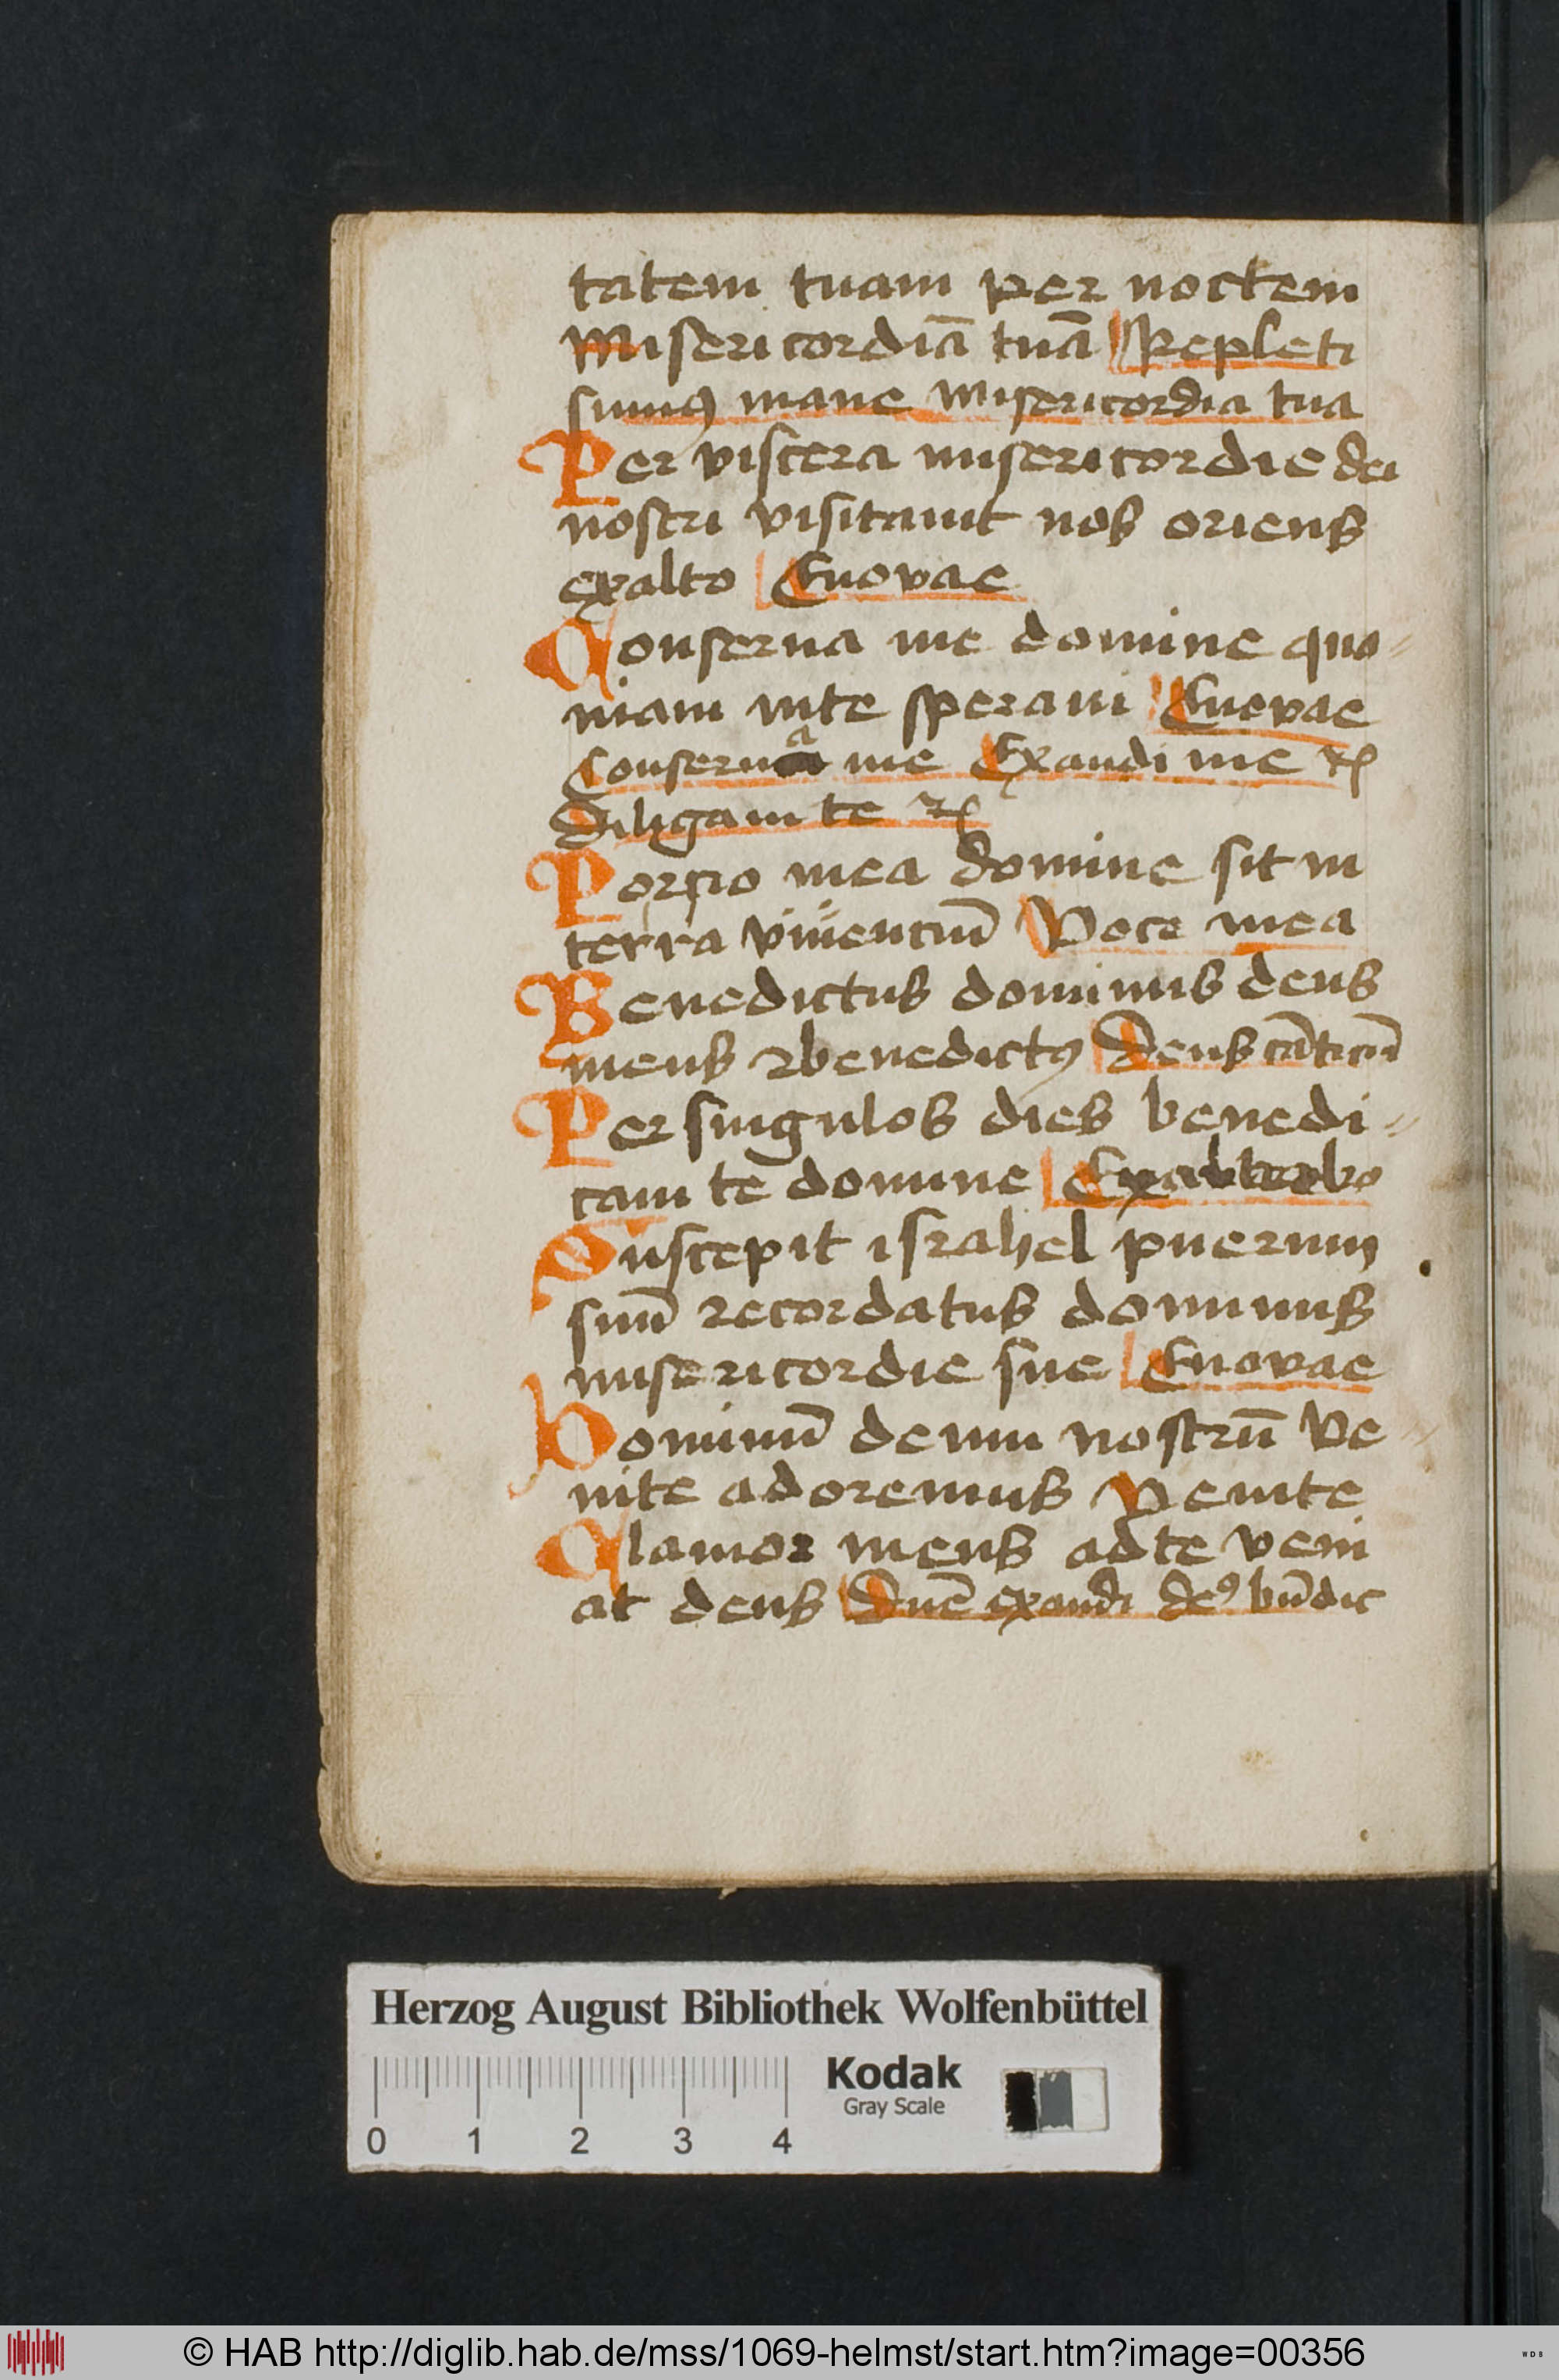 tatem tuam per noctem
Misericordiā tuā Repleti
sumꝰ mane misericordia tua
Per viscera misericordie dei
nostri visitauit nos oriens
exalto Euovae
Conserua me domine quo⸗
niam inte speraui Euovae
Conserua me Exaudi me ⁊c
Diligam te ⁊c
Porcio mea domine sit in
terra viuenciū Voce mea
Benedictus dominus deus
meus ⁊benedictꝰ Deus cāticū
Per singulos dies benedi⸗
cam te domine Exaltabo
Suscepit israhel puerum
suū recordatus dominus
misericordie sue Euovae
Dominū deum nostrū Ve⸗
nite adoremus Venite
Clamor meus adte veni
at deus Dnē exaudi deꝰ bn̄dic
Herzog August Bibliothek Wolfenbüttel
Kodak
Gray Scale
0 1 2 3 4
© HAB http://diglib.hab.de/mss/1069-helmst/start.htm?image=00356
WDB